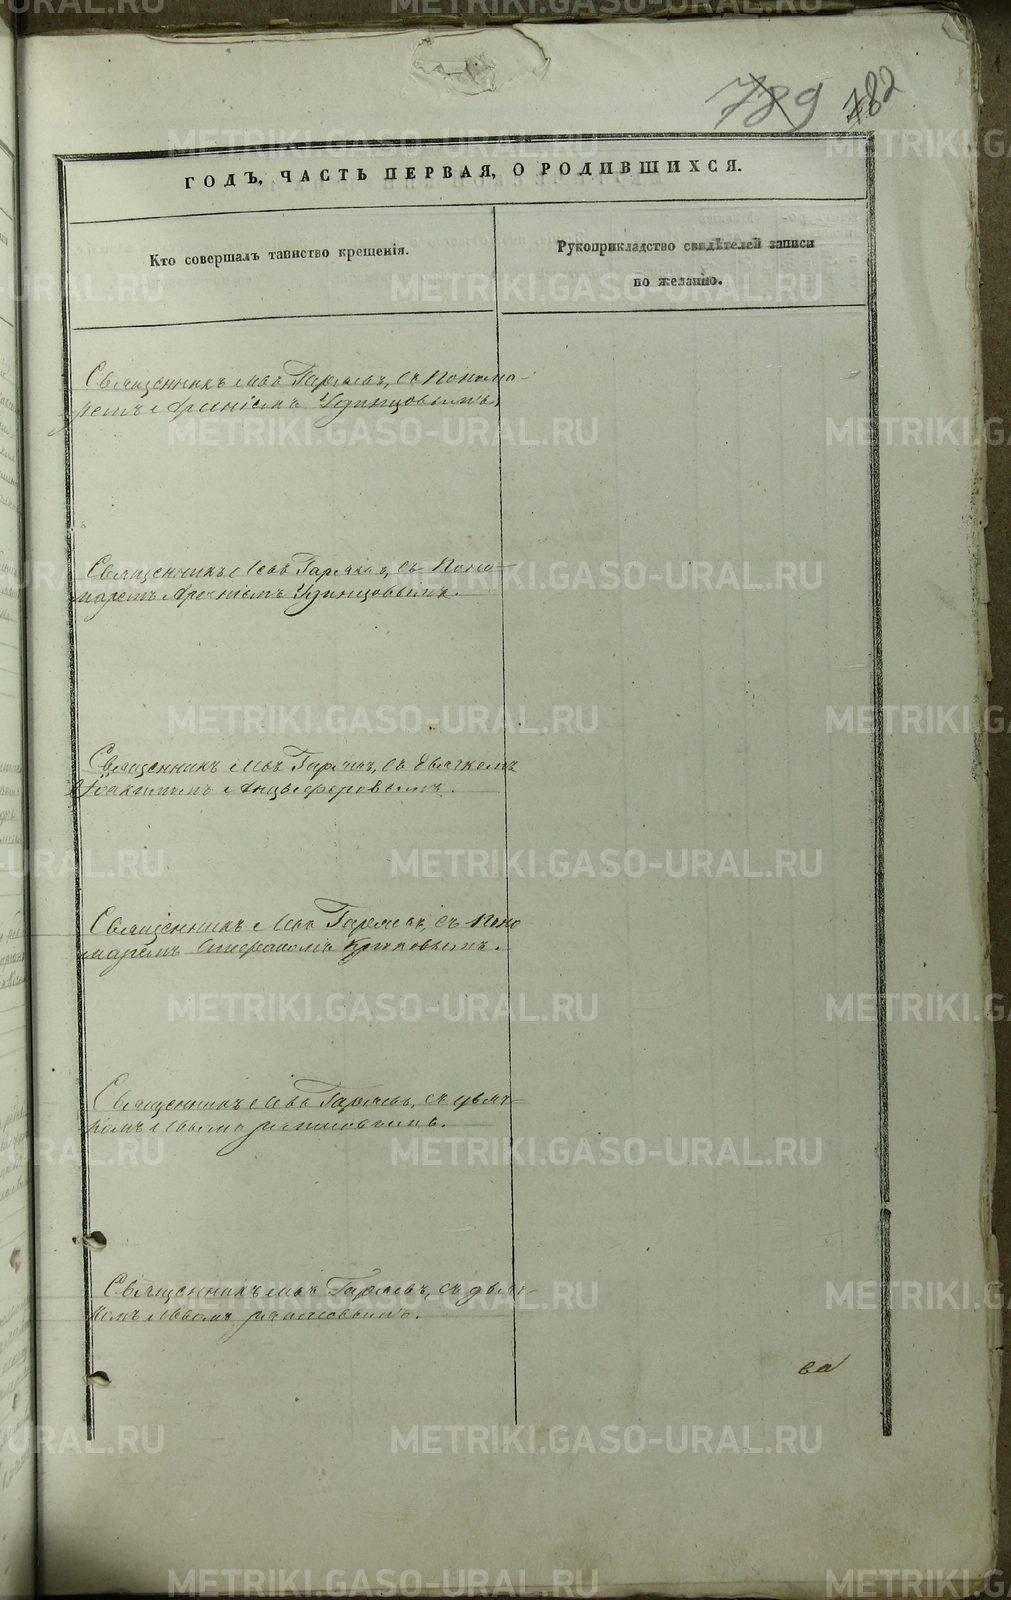 789 782
ГОДЪ, ЧАСТЬ ПЕРВАЯ, О РОДИВШИХСЯ.
Кто совершалъ таинство крещенія.
Рукоприкладство свидѣтелей записи
по желанію.
Священникъ Левъ Гаряевъ, съ Понома-
ремъ Арсеніемъ Удинцовымъ.
Священникъ Левъ Гаряевъ, съ Поно-
маремъ Арсеніемъ Удинцовымъ.
Священникъ Левъ Гаряевъ, съ Дьячкомъ
Іоакимомъ Анцыферовымъ.
Священникъ Левъ Гаряевъ, съ Поно
маремъ Стефаномъ
Священникъ Левъ Гаряевъ, съ дьяч-
комъ
Священникъ Левъ Гаряевъ, съ дьяч-
комъ
METRIKI.GASO-URAL.RU